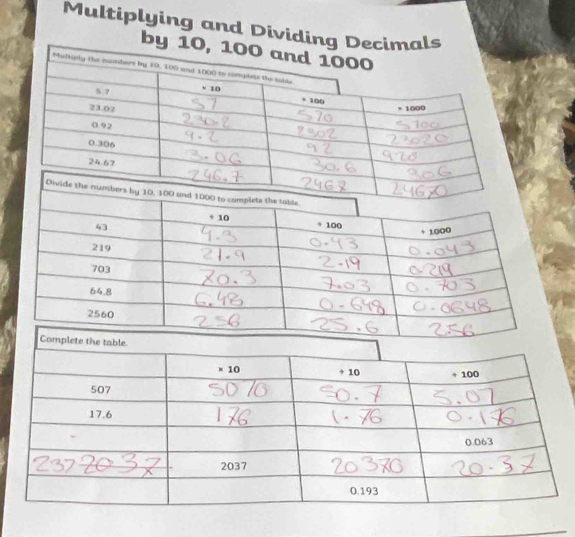 Multiplying and Dividing Decimals
by 10, 100 and 1000
Multiply the numbers by 10, 100 and 1000 to complete the table.
× 10 × 100 × 1000
5.7 57 570 5700
23.02 230.2 2302 23020
0.92 9.2 92 920
0.306 3.06 30.6 306
24.67 246.7 2467 24670
Divide the numbers by 10, 100 and 1000 to complete the table.
÷ 10 ÷ 100 ÷ 1000
43 4.3 0.43 0.043
219 21.9 2.19 0.219
703 70.3 7.03 0.703
64.8 6.48 0.648 0.0648
2560 256 25.6 2.56
Complete the table.
× 10 ÷ 10 ÷ 100
507 5070 50.7 5.07
17.6 176 1.76 0.176
0.063
2037 2037 20370 20.37
0.193